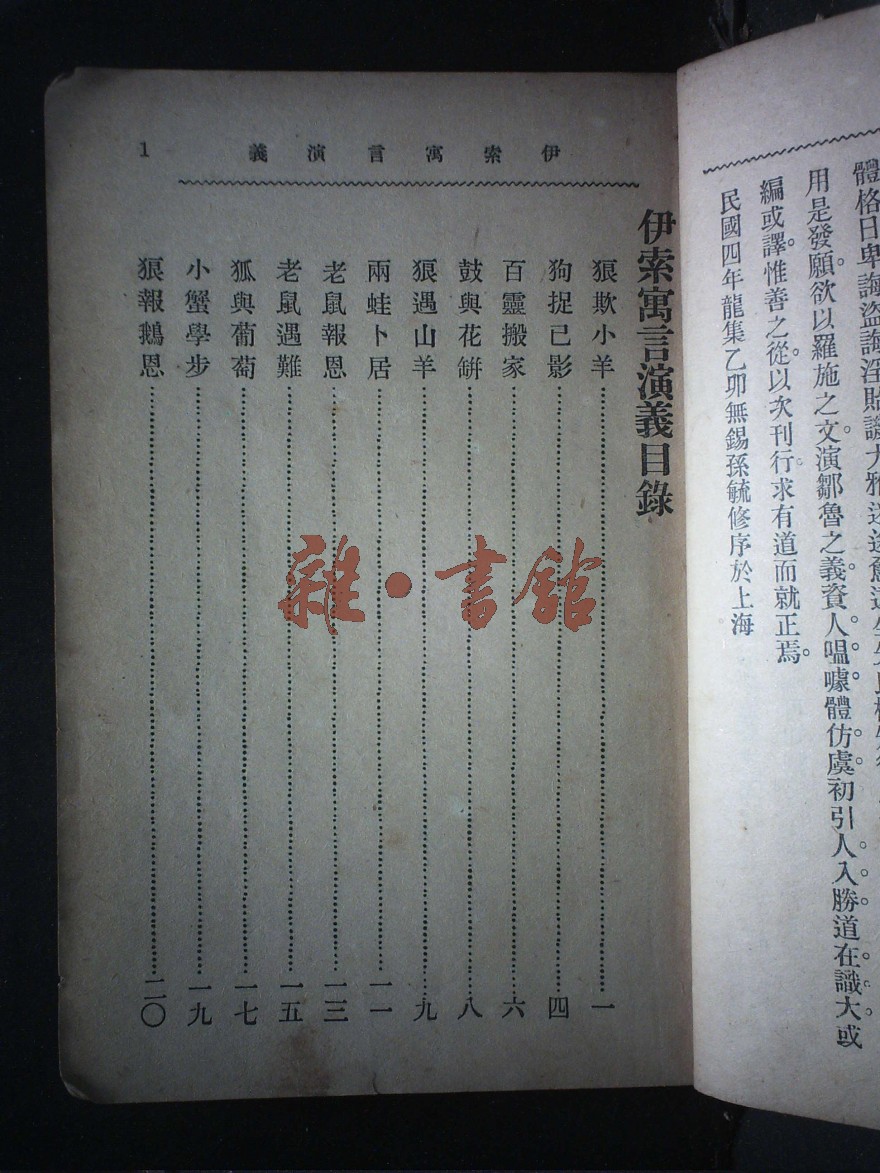 用是發願欲以羅施之文。演鄒魯之義。資人嗢噱。體仿虞初。引人入勝。道在識大。或
編或譯。惟善之從。以次刊行。求有道而就正焉。
民國四年龍集乙卯無錫孫毓修序於上海
伊索寓言演義
1
伊索寓言演義目錄
狼欺小羊……一
狗捉己影……四
百靈搬家……六
鼓與花缾……八
狼遇山羊……九
兩蛙卜居……一一
老鼠報恩……一三
老鼠遇難……一五
狐與葡萄……一七
小蟹學步……一九
狼報鵝恩……二〇
雜·書館